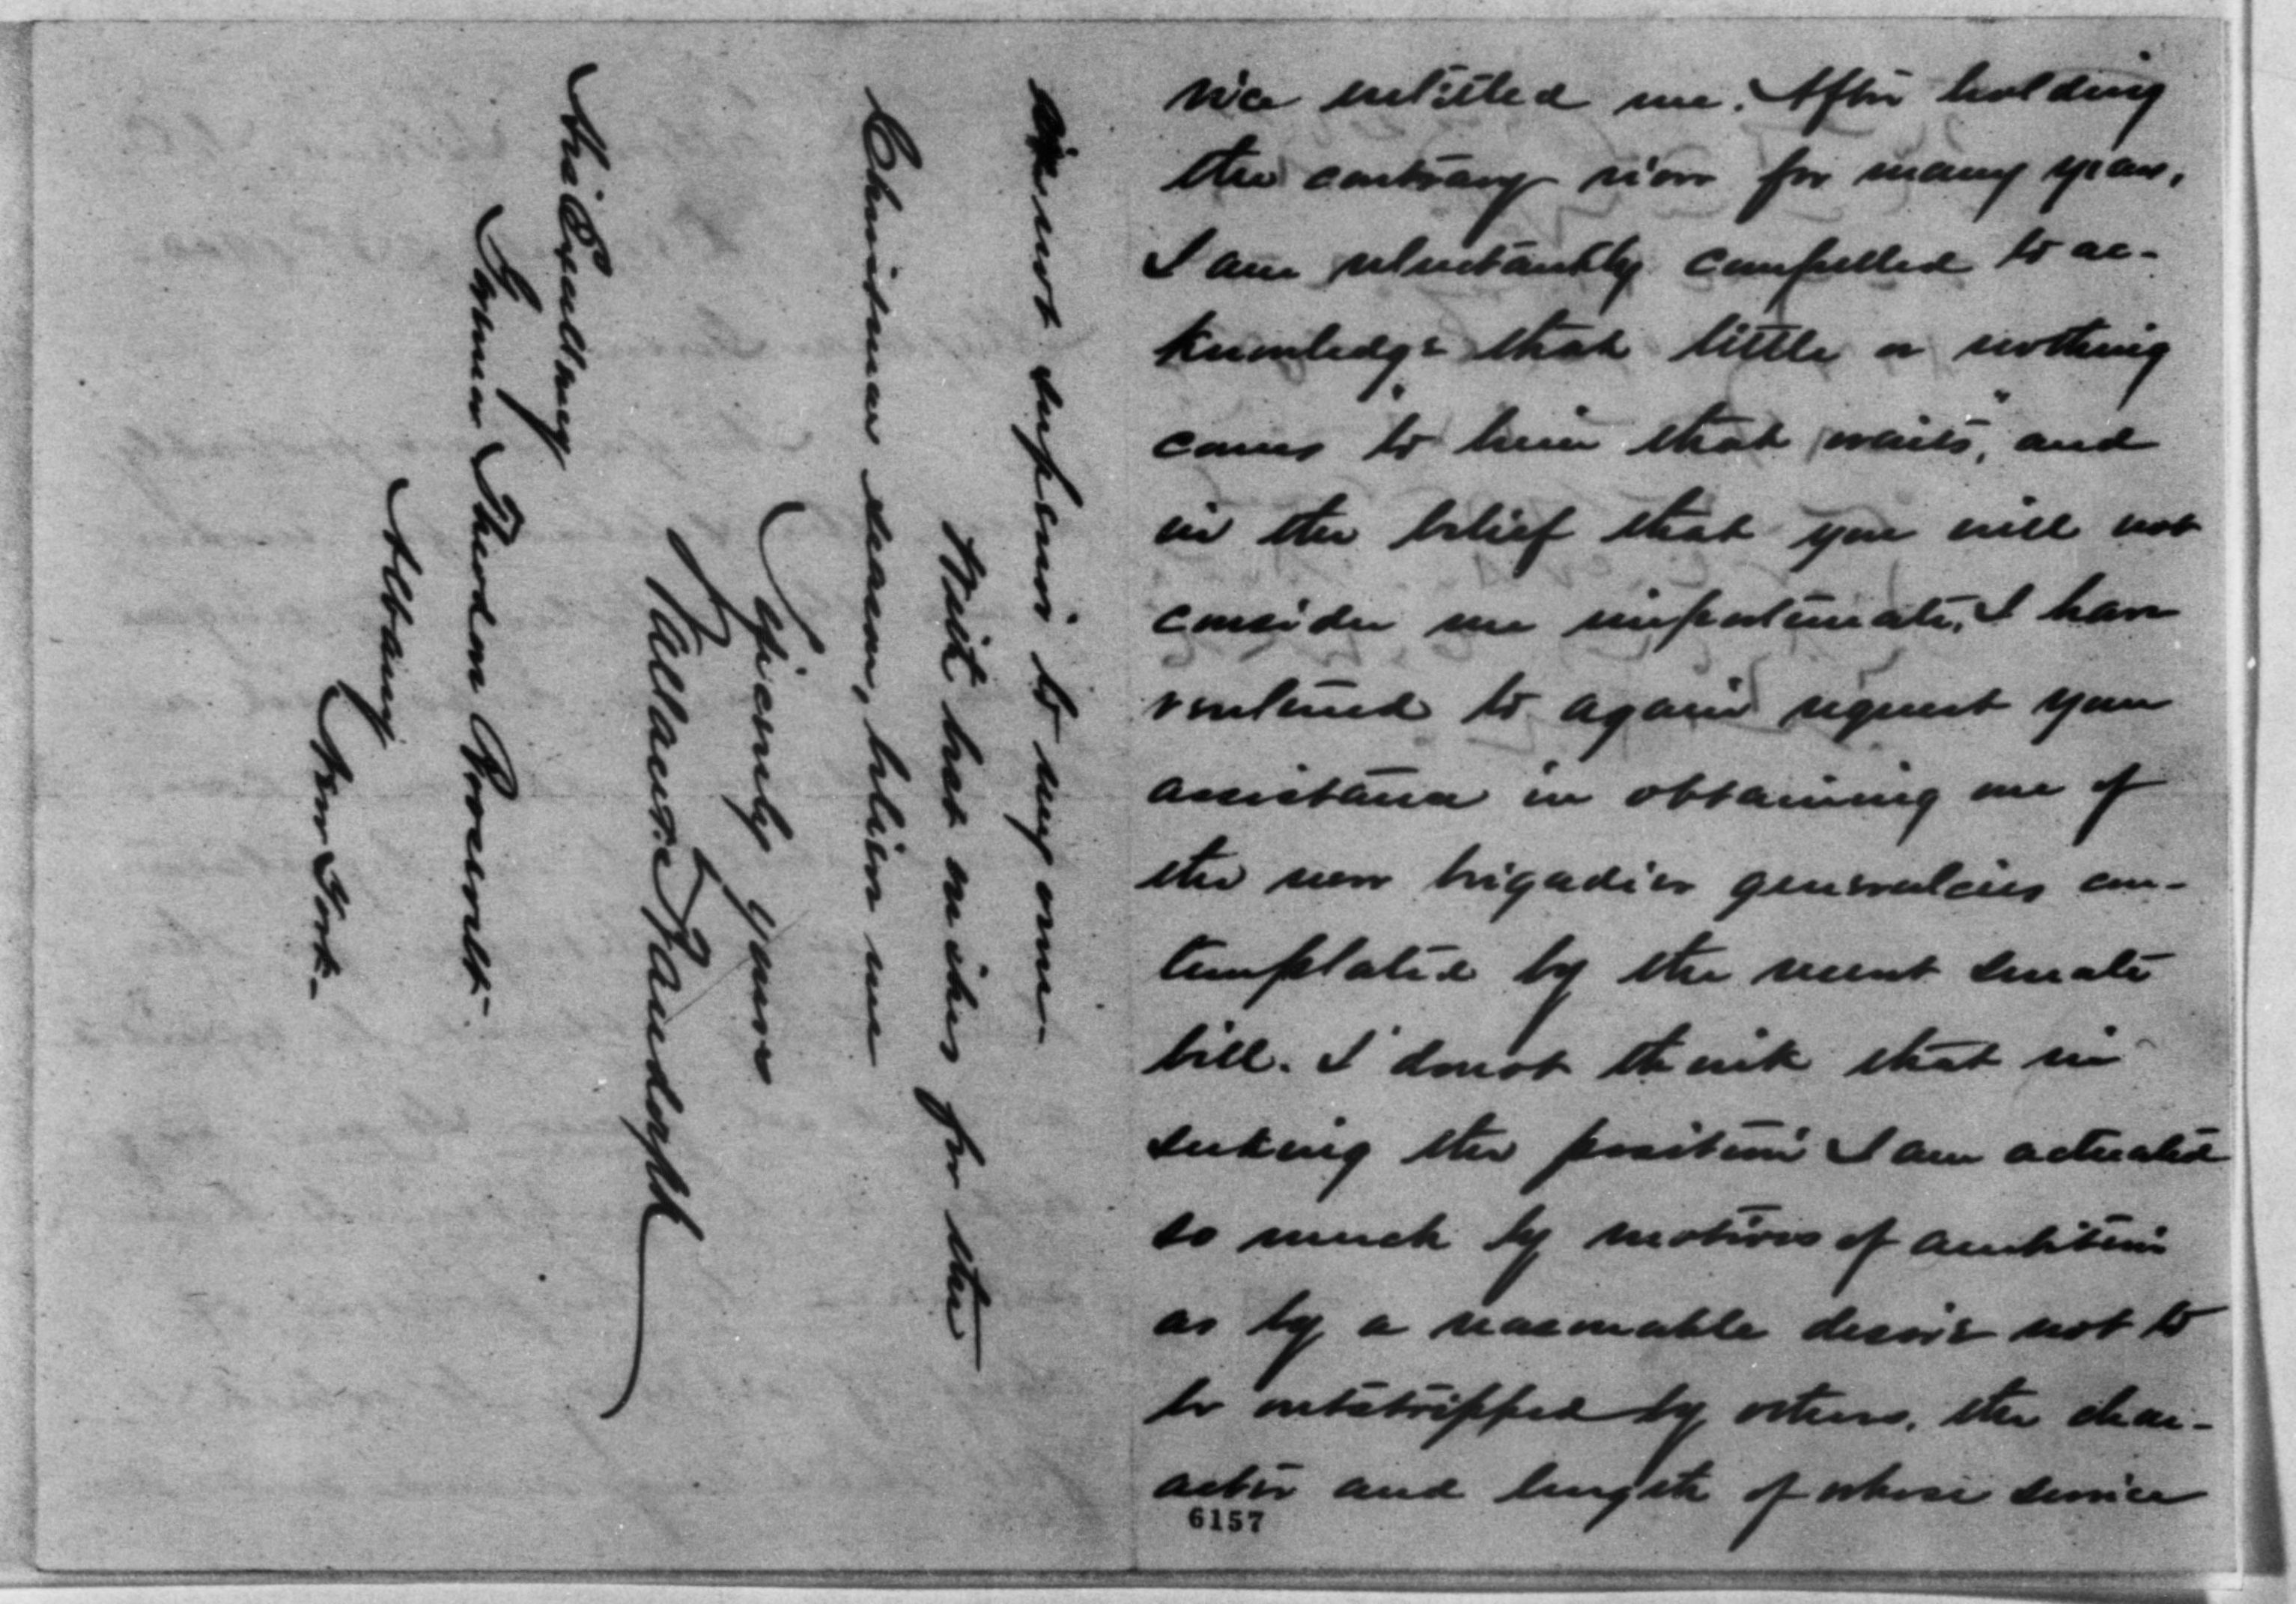 vice entitled me. After holding
the contrary view for many years,
I am reluctantly compelled to ac-
knowledge that little or nothing
comes "to him that waits," and
in the belief that you will not
consider me importunate, I have
ventured to again request your
assistance in obtaining one of
the new brigadier generalcies con-
templated by the recent senate
bill. I do not think that in
seeking the position I am actuated
so much by motives of ambition
as by a reasonable desire not to
be outstripped by others, the char-
acter and length of whose service
6157
are not superior to my own.
With best wishes for the
Christmas season, believe me
Sincerely yours
Wallace F. Randolph
His Excellency
Governor Theodore Roosevelt
Albany
New York.